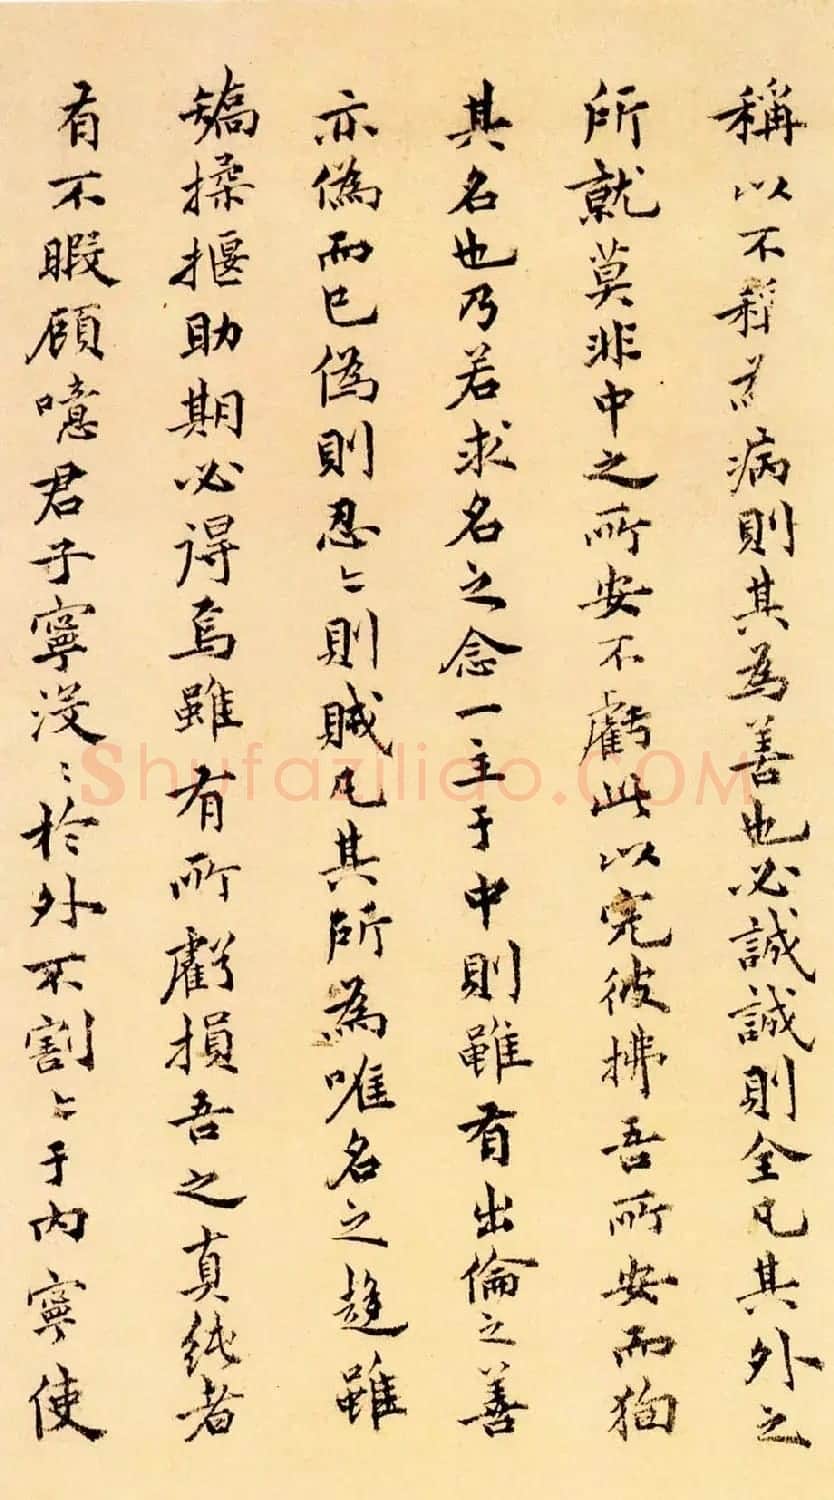 稱以不稱為病則其為善也必誠誠則全凡其外之
所就莫非中之所安不虧此以完彼拂吾所安而狥
其名也乃若求名之念一主于中則雖有出倫之善
亦偽而已偽則忍〻則賊凡其所為唯名之趍雖
矯揉揠助期必得焉雖有所虧損吾之真純者
有不暇顧噫君子寧沒〻於外不割〻于內寧使
Shufaziliao.COM